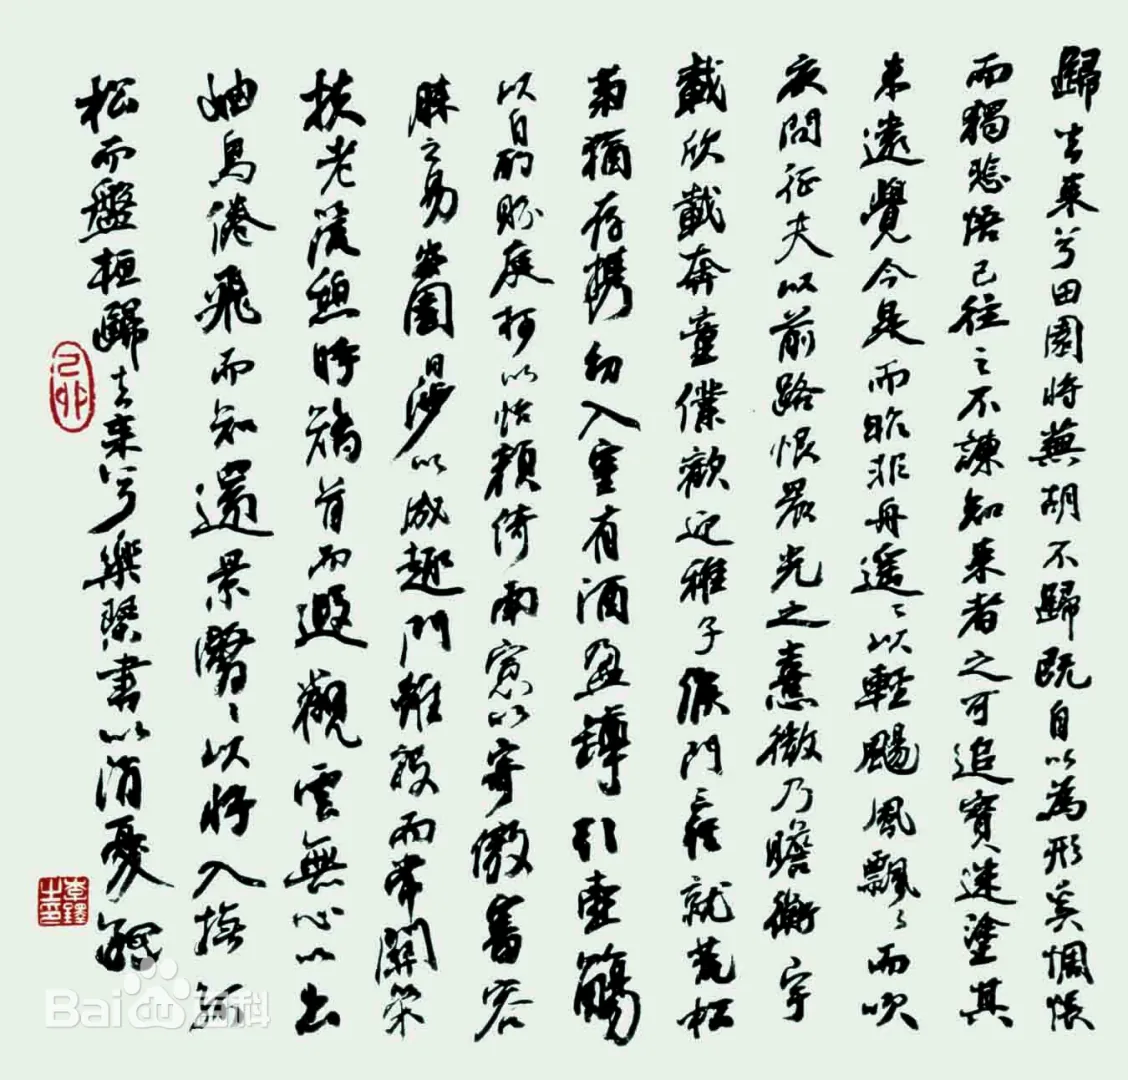 歸去來兮田園將蕪胡不歸既自以為形奚惆悵
而獨悲悟已往之不諫知来者之可追實迷塗其
未遠覺今是而昨非舟遥〻以輕颺風飄〻而吹
衣問征夫以前路恨晨光之熹微乃瞻衡宇
載欣載奔童僕歡迎稚子候門三徑就荒松
菊猶存攜幼入室有酒盈罇引壺觴
以自酌眄庭柯以怡顔倚南窓以寄傲審容
膝之易安園日涉以成趣門雖設而常關策
扶老流憩時矯首而遐觀雲無心以出
岫鳥倦飛而知還景翳〻以將入撫孤
松而盤桓歸去来兮樂琴書以消憂 鐸
己卯
李鐸之印
Bai百科